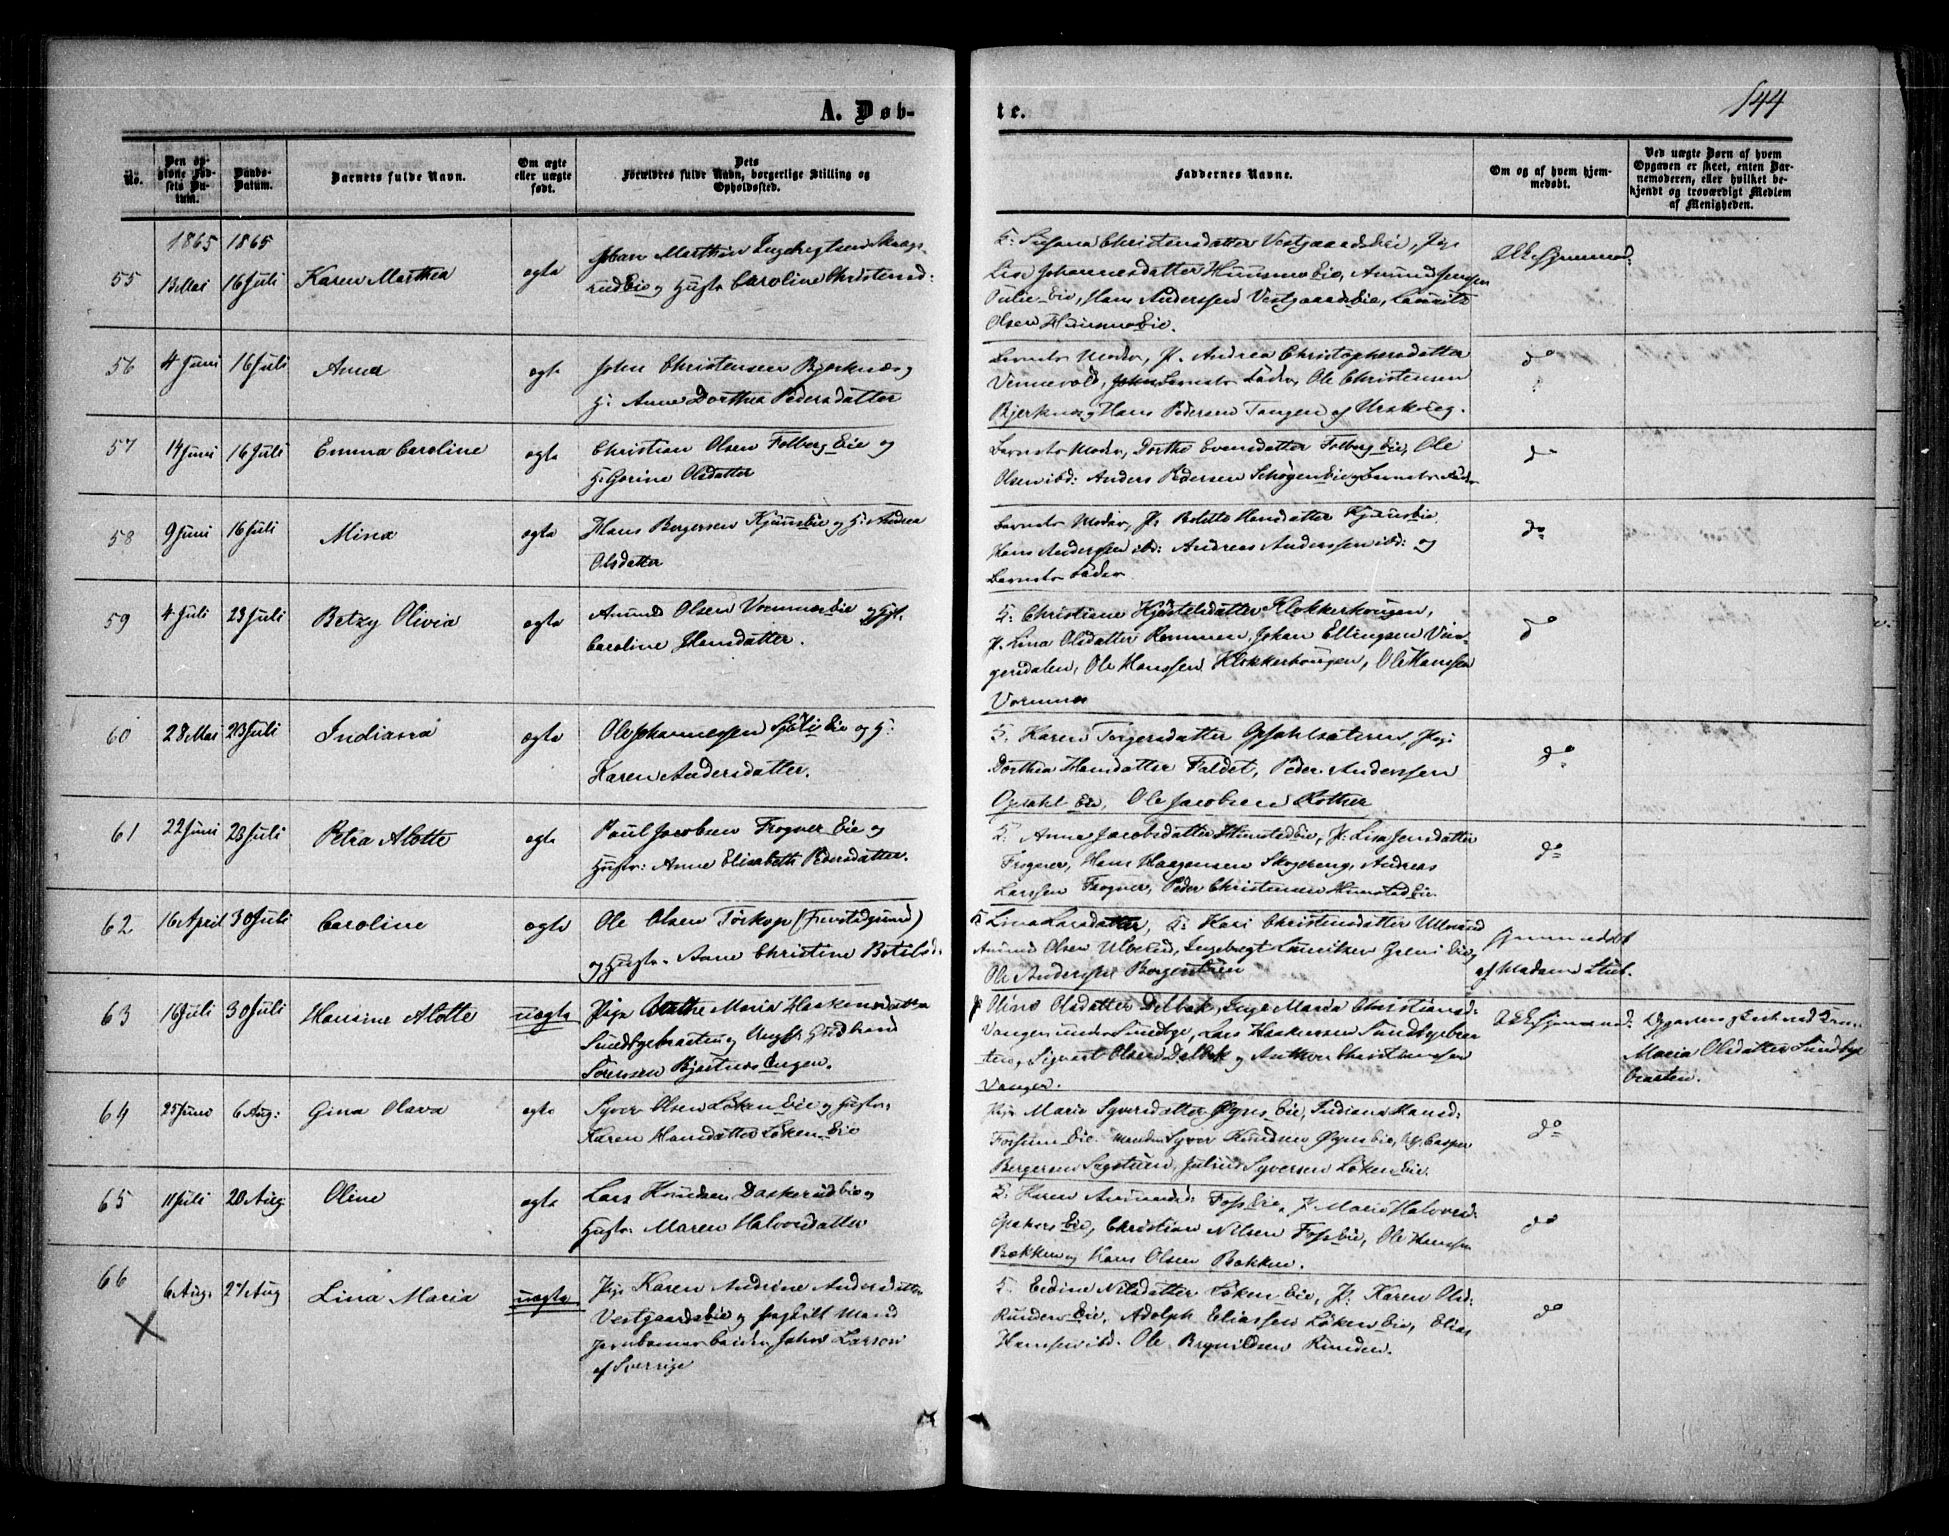 144
A. Døbte.
No.
Den opgivne Fødsels Datum.
Daabs-Datum.
Barnets fulde Navn.
Om ægte eller uægte født.
Dets Forældres fulde Navn, borgerlige Stilling og Opholdssted.
Faddernes Navne.
Om og af hvem hjemmedøbt.
Ved uægte Børn af hvem Opgaven er skeet, enten Barnemoderen, eller hvilket bekjendt og troværdigt Medlem af Menigheden.
1865 1865
55 13 Mai 16 Juli Karen Mathea ægte
Johan Marthin Engebregtsen
Eie og Hustr. Caroline Christensd:
F: Susana Christensdatter Vestgaardseie, Pige
Lise Johannesdatter Huusmoeie, Amund Jensen
Julie Eie, Hans Anderssen Vestgaardseie, Lauritz
Olsen Huusmoeie.
56 4 Juni 16 Juli Anna ægte
John Christensen Bjerknes og
H: Anne Dorthea Pedersdatter
Barnets Moder, P. Andrea Christophersdatter
Vennevold, Barnets Fader, Ole Christensen
Bjerknes og Hans Pedersen Tangen af Urskoug.
do
57 14 Juni 16 Juli Emma Caroline ægte
Christian Olsen Folberg Eie og
H: Gorine Olsdatter
Barnets Moder, Dorthe Evensdatter Folberg Eie, Ole
Olsen ibd: Anders Pedersen Skøgen Eie og Barnets Fader
do
58 9 Juni 16 Juli Mina ægte
Hans Borgersen Kjuuseie og H: Andrea
Olsdatter
Barnets Moder, P. Bolette Hansdatter Kjuuseie
Hans Anderssen ibd: Andreas Anderssen ibd: og
Barnets Fader
do
59 4 Juli 23 Juli Betzy Olivia ægte
Amund Olsen Vormnes Eie og Hst.
Caroline Hansdatter.
F: Christiane Kjøstelsdatter Klokkerhougen,
P. Lina Olsdatter Rommen, Johan Ellingsen Vin-
gersdalen, Ole Hanssen Klokkerhougen, Ole Hanssen
Vormnes
do
60 28 Mai 23 Juli Indiana ægte
Ole Johannessen Eie og H:
Karen Andersdatter.
F: Karen Torgersdatter Opsahlsæteren, Pige
Dorthea Hansdatter Faldet, Peder Anderssen
Opsahl Eie, Ole Jacobsen Rother
do
61 22 Juni 23 Juli Petra Alotte ægte
Paul Jacobsen Frogner Eie og
Hustr: Anne Elisabeth Pedersdatter.
F: Anne Jacobsdatter Himstadeie, P: Lisa Jensdatter
Frogner, Hans Haagensen Skogreng, Andreas
Larssen Frogner, Peder Christensen Himstadeie
do
62 16 April 30 Juli Caroline ægte
Ole Olsen Torskop (Frestadgrund)
og Hustr. Anne Christine Botilsd:
F. Lina Larsdatter, F: Kari Christensdatter Ulverud
Amund Olsen Ulverud, Ingebregt Lauritzen Eie og
Ole Anderssen
Hjemmedøbt
af Madame
63 16 Juli 30 Juli Hansine Alotte uægte
Pige Marthe Maria Haakensdatter
Sundbybraaten og Ungk. Guldbrand
Sørensen Bjertnes Engen.
P Oline Olsdatter Delbæk, Inge Maria Christiansd:
Vangen under Sundbye, Lars Haakensen Sundbybraa-
ten, Sigvart Olsen Delbæk og Anthon Christiansen
Vangen.
Opgaven skeet ved
Maria Olsdatter Sundbye
braaten.
64 25 Juni 6 Aug: Gina Olava ægte
Syver Olsen Løken Eie og Hustr:
Karen Hansdatter Løken Eie
Pige Marie Syversdatter Eie, Indiana Hansd:
Fossum Eie. Manden Syver Knudsen Eie, Casper
Bergersen Sagstuen, Julius Syversen Løken Eie.
do
65 11 Juli 20 Aug Oline ægte
Lars Knudsen Daskerud Eie og
Hustr. Maren Halvorsdatter
F: Karen Amundsd: Fosseie, P Marie Halvorsd:
Eie, Christian Nilsen Fosseie, Ole Hanssen
Bækken og Hans Olsen Bakken.
do
66 6 Aug. 27 Aug Lina Maria uægte
Pige Karen Andrine Andersdatter
Vestgaardseie og fraskilt Mand
Jernbanearbeider Johs Larson
af Sverrige
F: Nilsdatter Løken Eie, P: Karen Olsd:
Runden Eie, Adolph Eliassen Løken Eie, Elias
Hanssen ibd. Ole Brynildsen Runden.
do
X